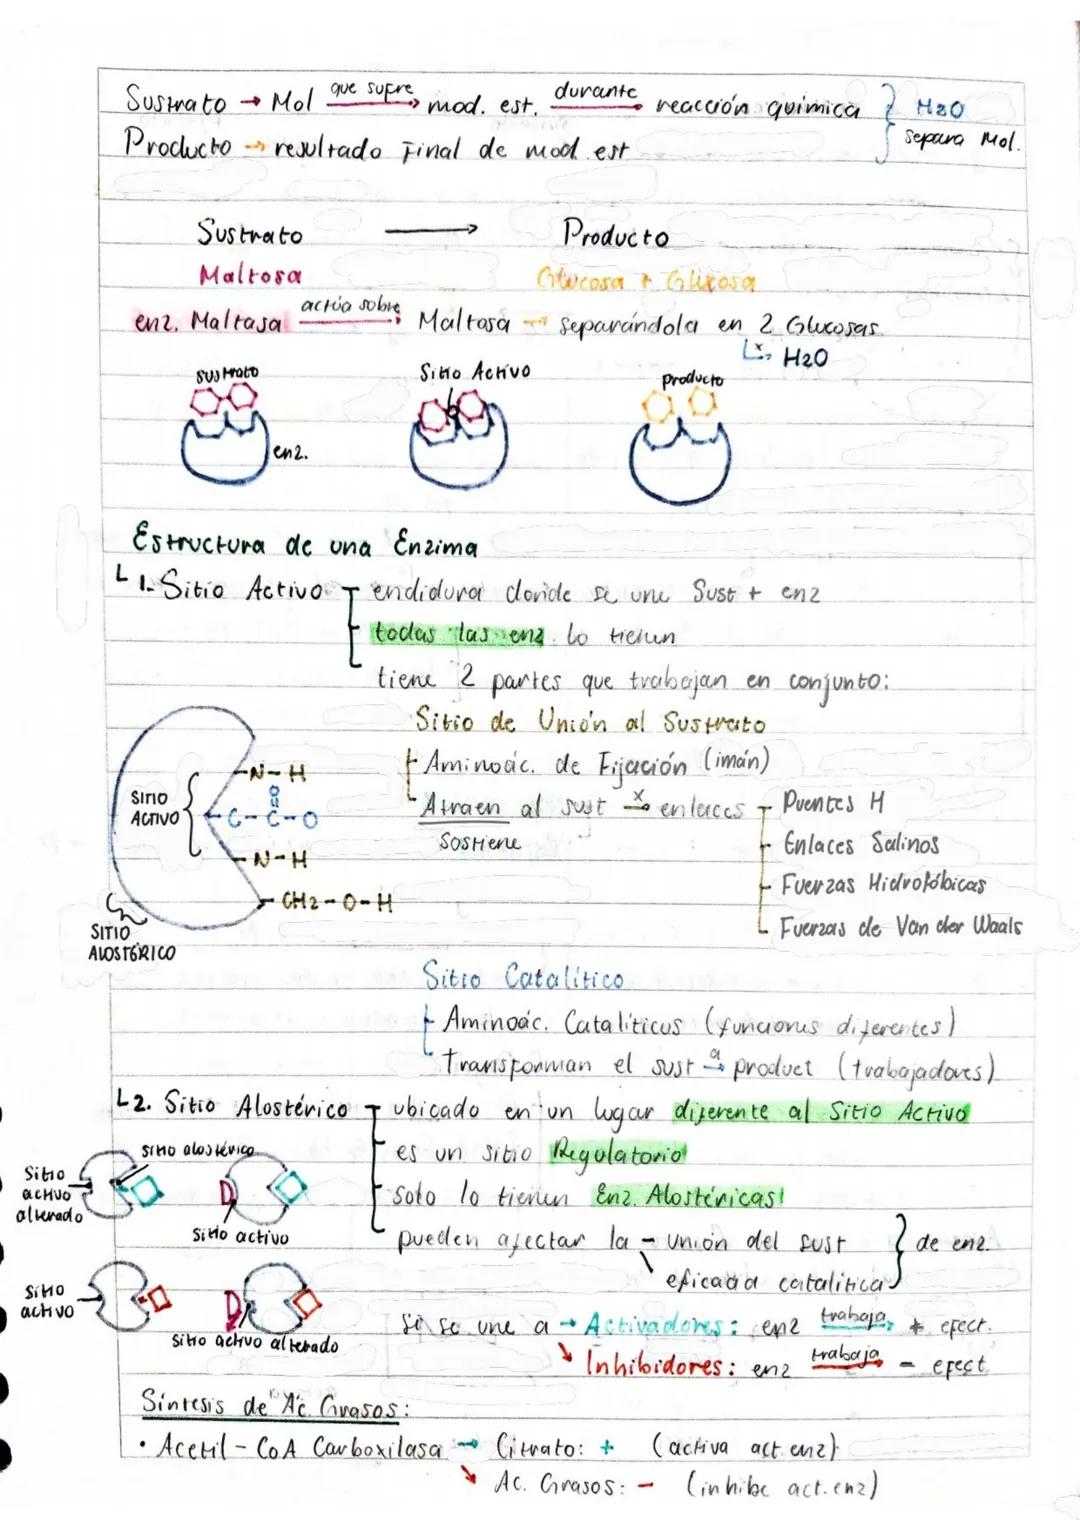 Sustrato → Mol que sufre → mod. est. durante → reacción química } H2O
Producto → resultado Final de mod. est } separa Mol.
Sustrato → Producto
Maltosa Glucosa + Glucosa
enz. Maltasa actúa sobre → Maltosa → separándola en 2 Glucosas
x → H2O
sustrato Sitio Activo producto
enz.
Estructura de una Enzima
1- Sitio Activo endidura donde se une Sust + enz
todas las enz. lo tienen
tiene 2 partes que trabajan en conjunto:
Sitio de Unión al Sustrato
Aminoác. de Fijación (imán)
Atraen al sust x → enlaces Puentes H
Sostiene Enlaces Salinos
Fuerzas Hidrofóbicas
Fuerzas de Van der Waals
SITIO ACTIVO
N-H
O
C-C-O
N-H
CH2-O-H
SITIO
ALOSTÉRICO
Sitio Catalítico
Aminoác. Catalíticos (funciones diferentes)
Transforman el sust a → product (trabajadores)
2. Sitio Alostérico ubicado en un lugar diferente al Sitio Activo
es un sitio Regulatorio
solo lo tienen Enz. Alostéricas!
pueden afectar la - unión del sust } de enz.
eficacia catalítica
si se une a → Activadores: enz trabaja → + efect.
Inhibidores: enz trabaja → - efect
sitio alostérico
Sitio
activo
alterado
Sitio activo
Sitio
activo
Sitio activo alterado
Síntesis de Ác. Grasos:
• Acetil-CoA Carboxilasa → Citrato: + (activa act. enz)
Ac. Grasos: - (inhibe act. enz)